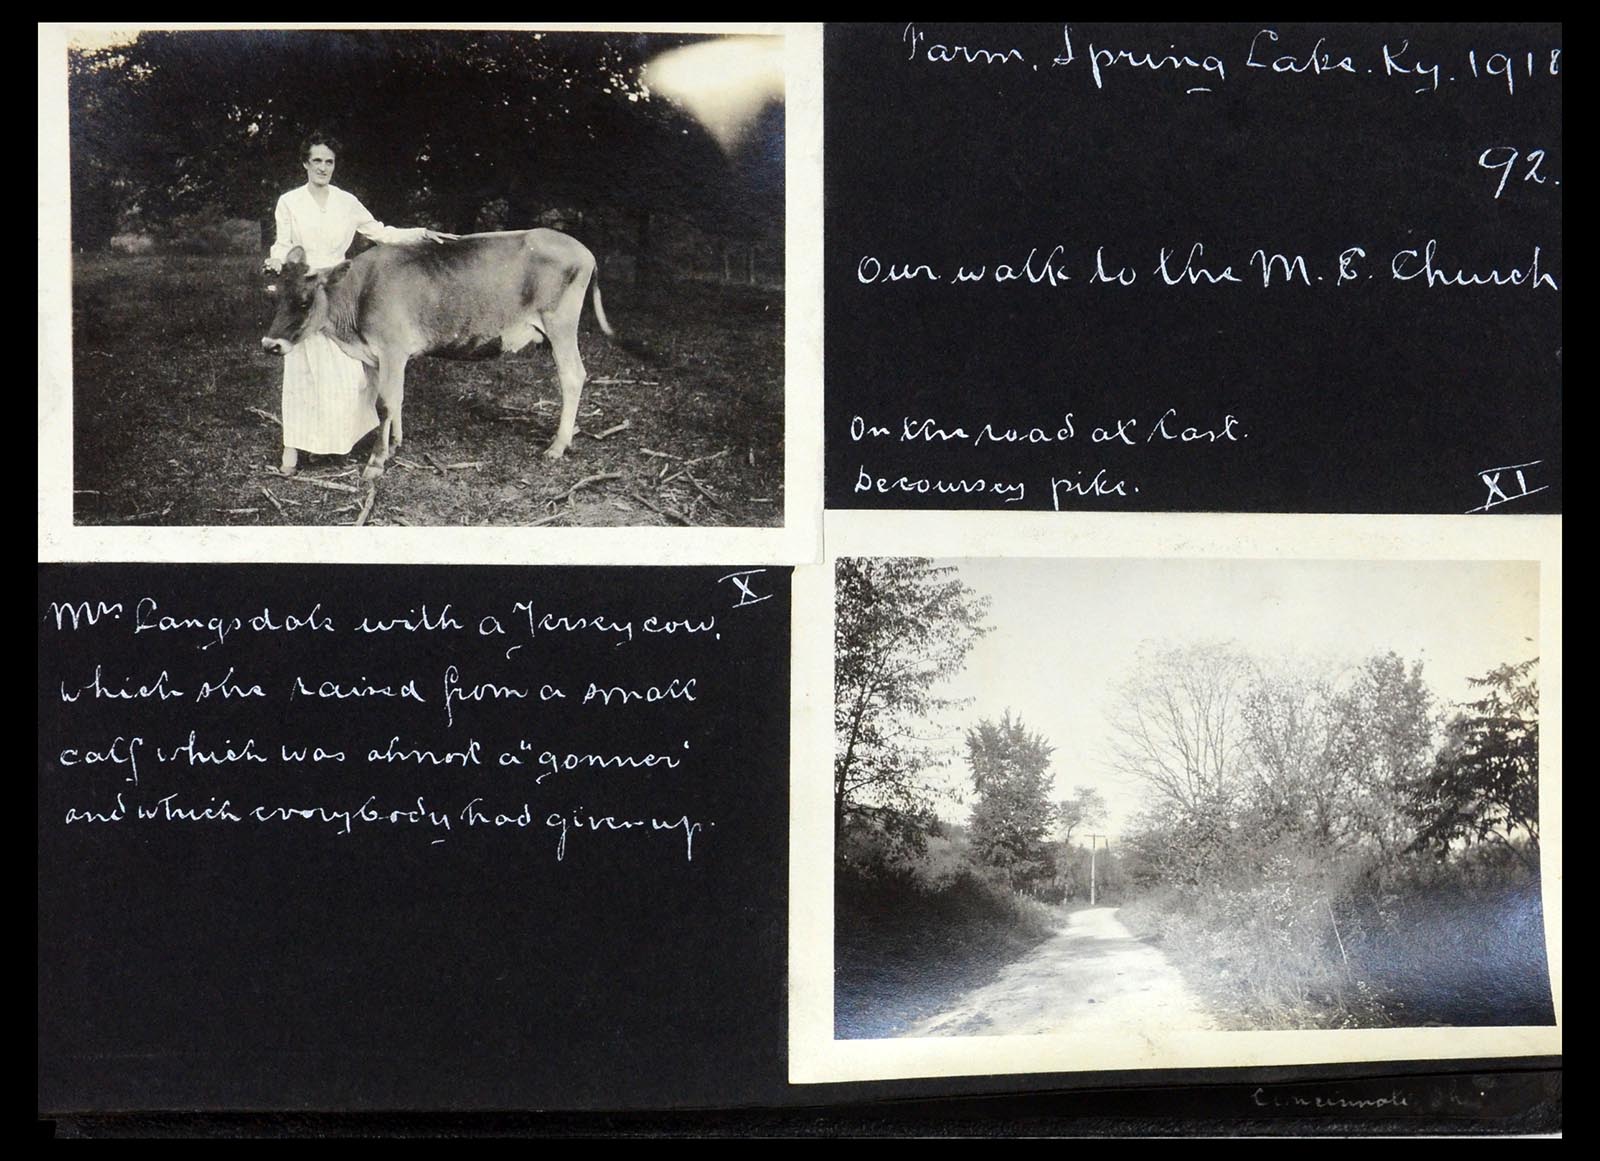 Farm. Spring Lake. Ky. 1918
92.
Our walk to the M. E. Church
On the road at last.
Decoursey pike.
XI
X
Mrs Langsdale with a Jersey cow,
which she raised from a small
calf which was almost a "gonner"
and which everybody had given up.
Cincinnati